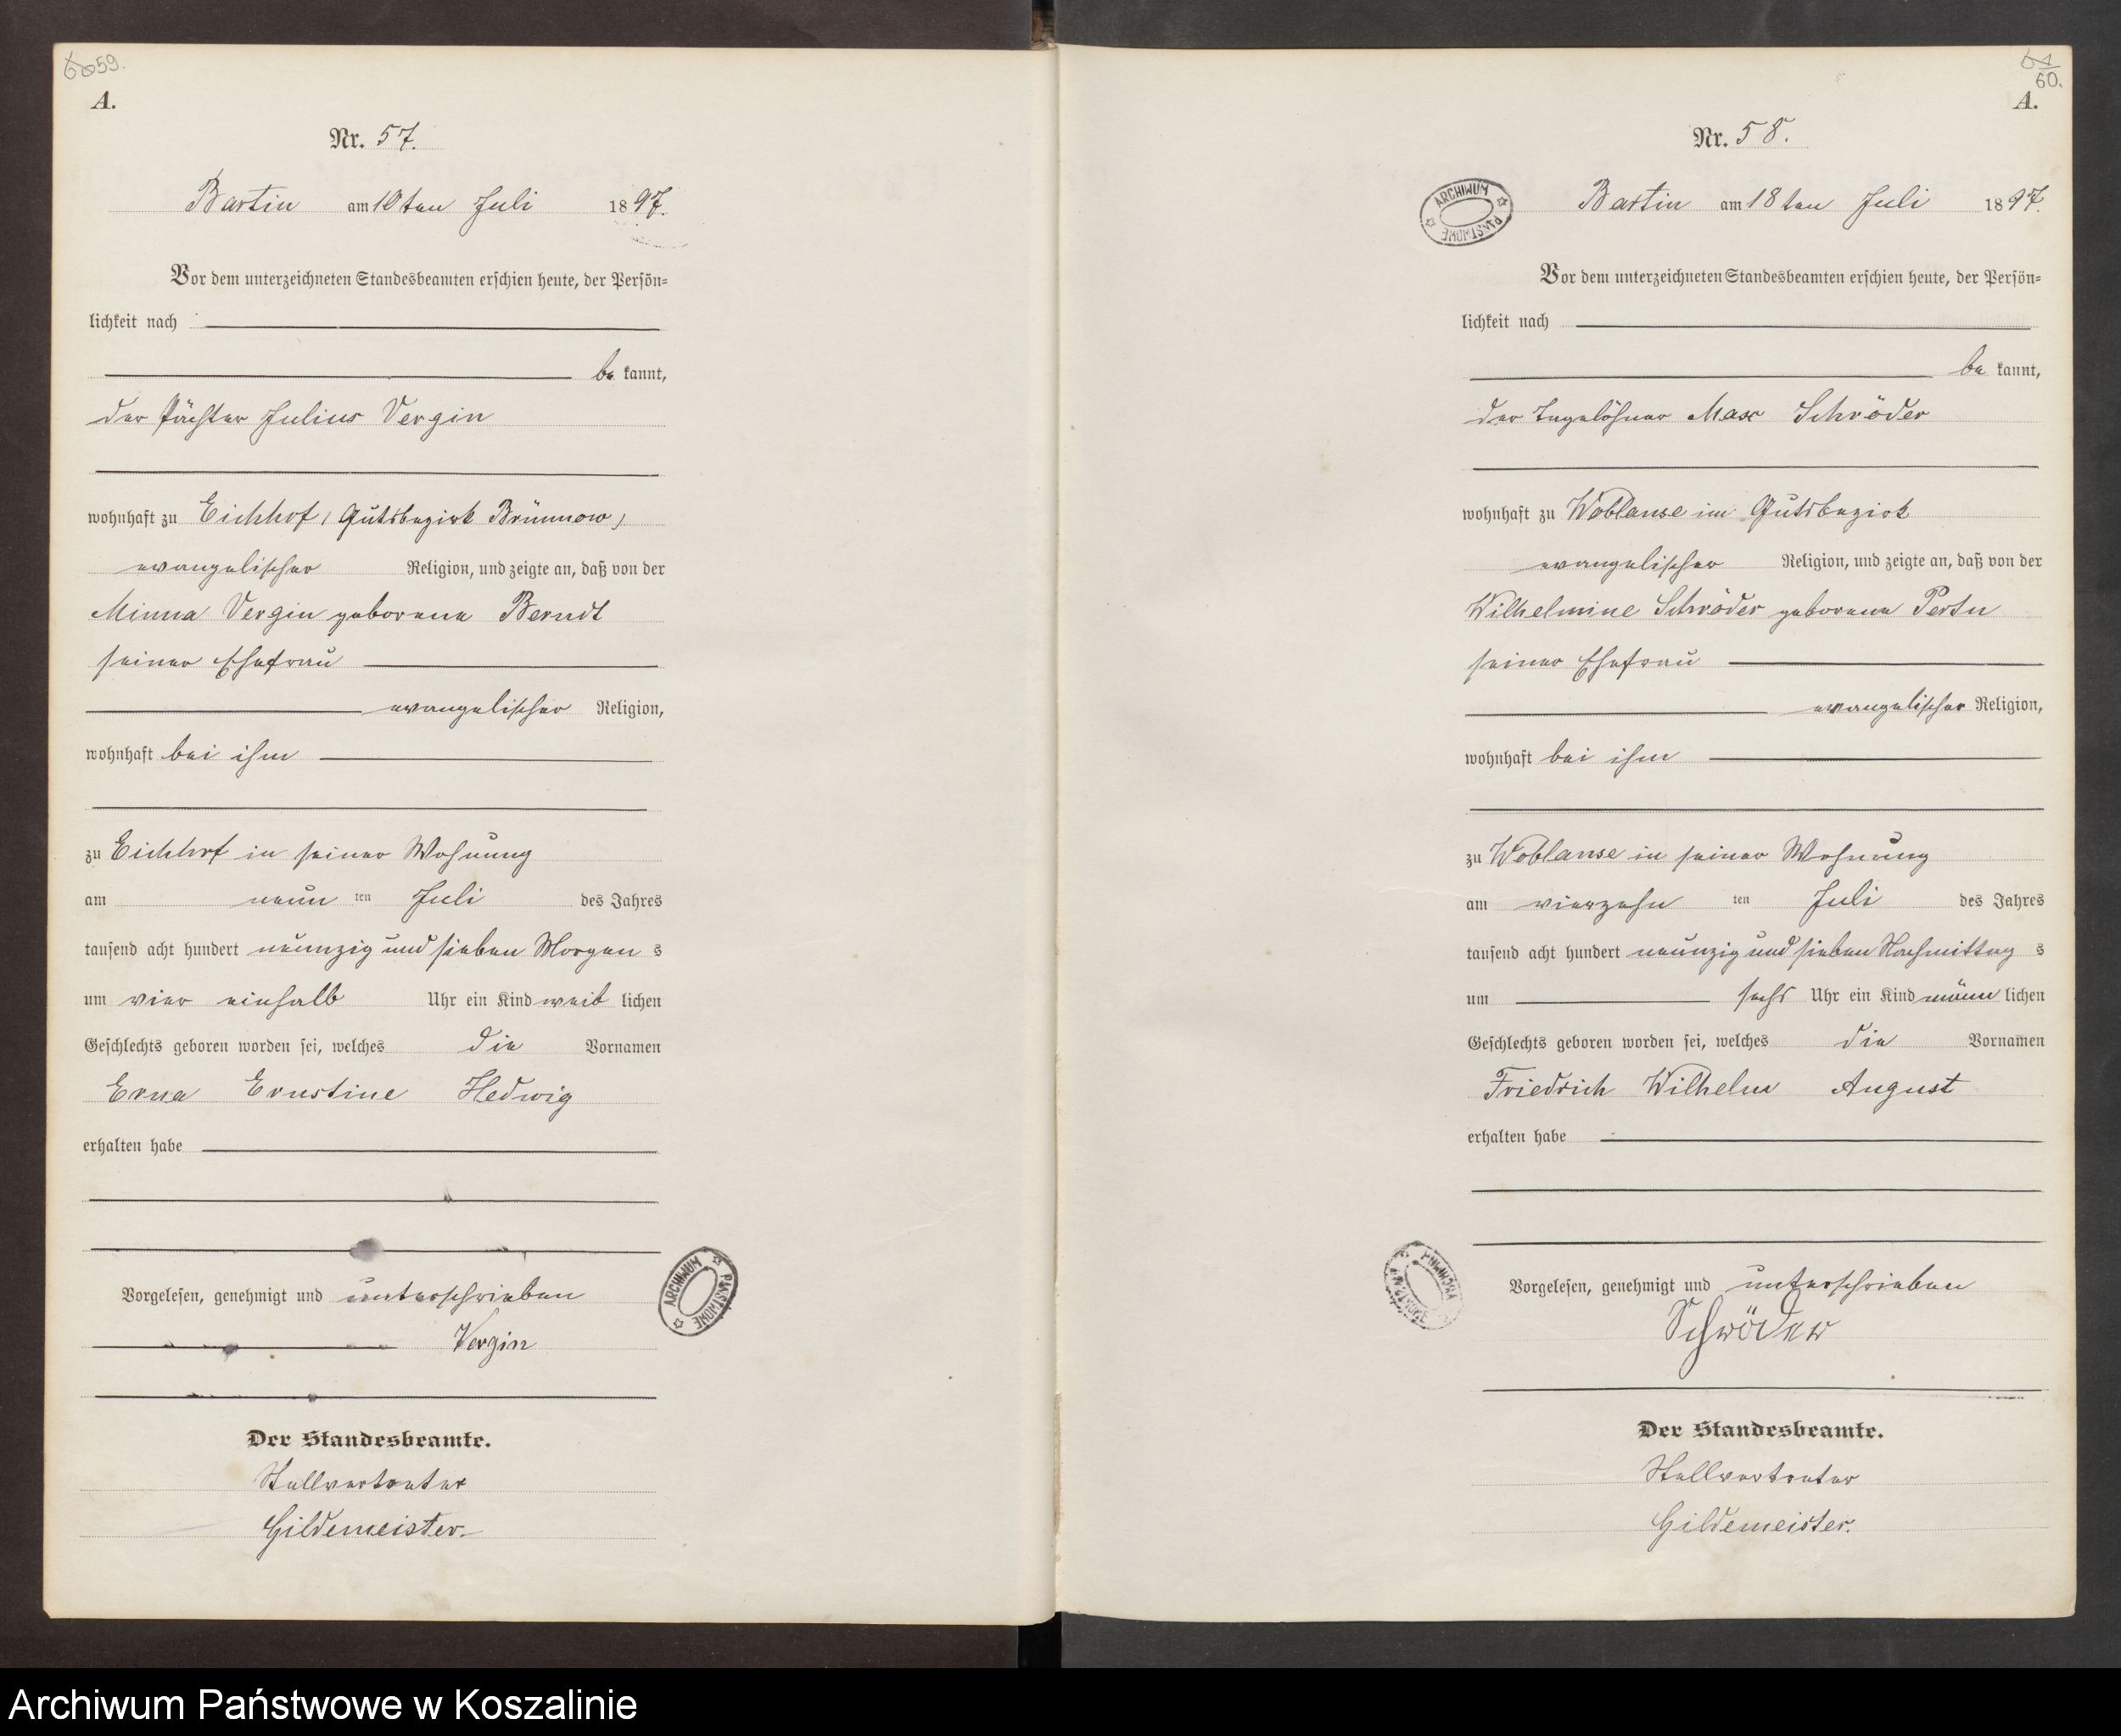 6059.
A.
Nr. 57.
Bartin am 10ten Juli 1897.
Vor dem unterzeichneten Standesbeamten erschien heute, der Persön-
lichkeit nach
bekannt,
der Pächter Julius Vergin
wohnhaft zu Eichhof, (Gutsbezirk Brünnow)
evangelischer Religion, und zeigte an, daß von der
Minna Vergin geborene Berndt
seiner Ehefrau
evangelischer Religion,
wohnhaft bei ihm
zu Eichhof in seiner Wohnung
am neun ten Juli des Jahres
tausend acht hundert neunzig und sieben Morgens
um vier einhalb Uhr ein Kind weiblichen
Geschlechts geboren worden sei, welches die Vornamen
Erna Ernstine Hedwig
erhalten habe
Vorgelesen, genehmigt und unterschrieben
ARCHIWUM PAŃSTWOWE
Vergin
Der Standesbeamte.
Stellvertreter
Gildemeister.
61
60.
A.
Nr. 58.
ARCHIWUM PAŃSTWOWE
Bartin am 18ten Juli 1897.
Vor dem unterzeichneten Standesbeamten erschien heute, der Persön-
lichkeit nach
bekannt,
der Tagelöhner Max Schröder
wohnhaft zu Woblanse im Gutsbezirk
evangelischer Religion, und zeigte an, daß von der
Wilhelmine Schröder geborene
seiner Ehefrau
evangelischer Religion,
wohnhaft bei ihm
zu Woblanse in seiner Wohnung
am vierzehn ten Juli des Jahres
tausend acht hundert neunzig und sieben Nachmittags
um sechs Uhr ein Kind männlichen
Geschlechts geboren worden sei, welches die Vornamen
Friedrich Wilhelm August
erhalten habe
Vorgelesen, genehmigt und unterschrieben
ARCHIWUM PAŃSTWOWE
Schröder
Der Standesbeamte.
Stellvertreter
Gildemeister.
Archiwum Państwowe w Koszalinie